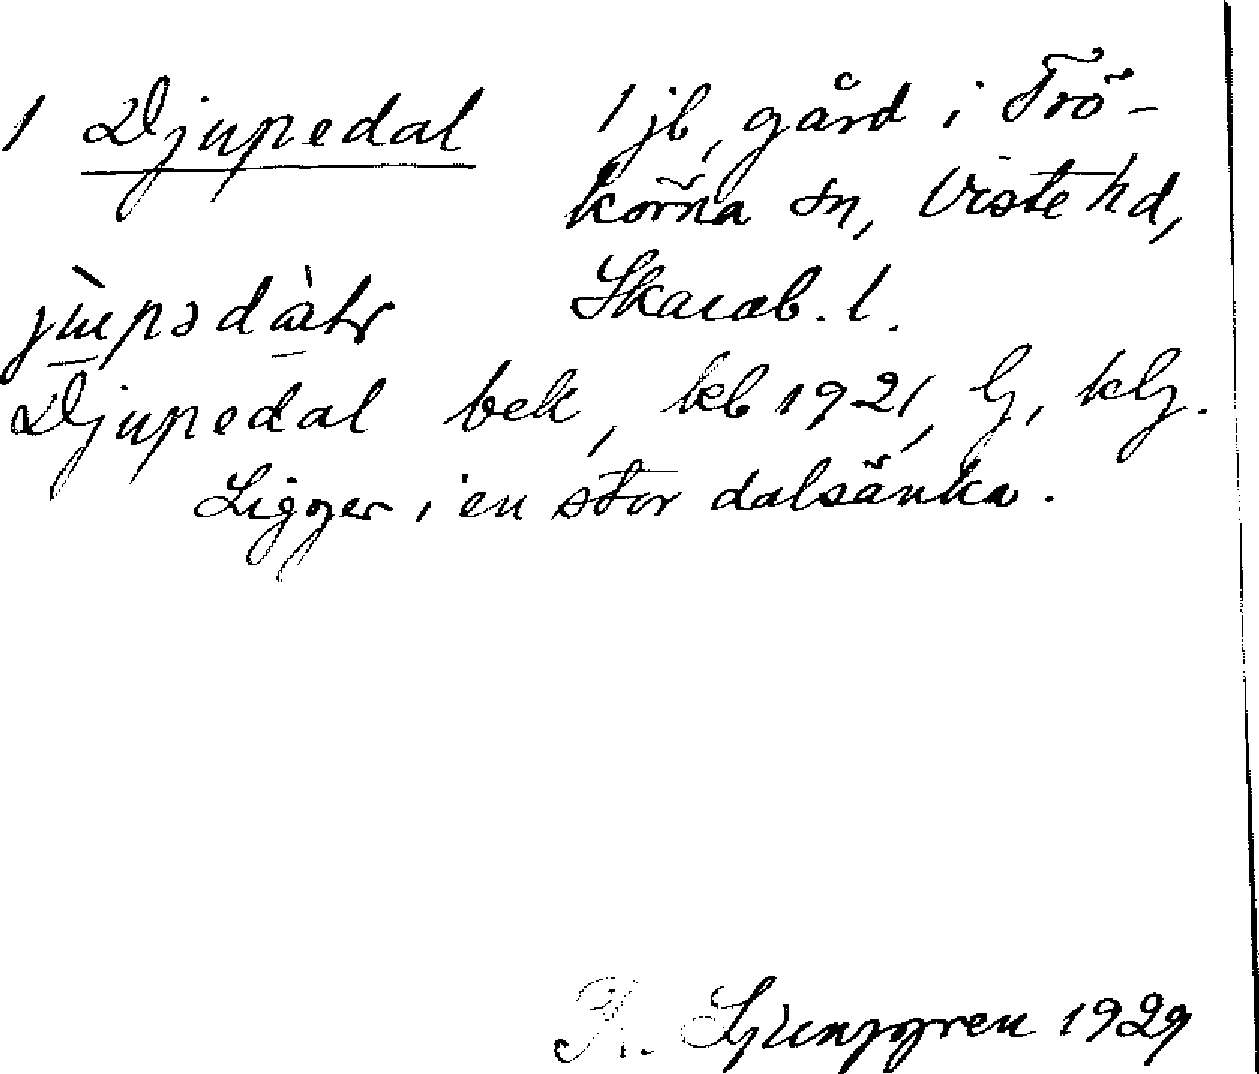 1 Djupedal 1 jb, gård i Trö-
körna sn, Viste hd,
Skarab. l.
Djupedal bek, kb 1921, G, kG.
Ligger i en stor dalsänka.
R. Ljunggren 1929